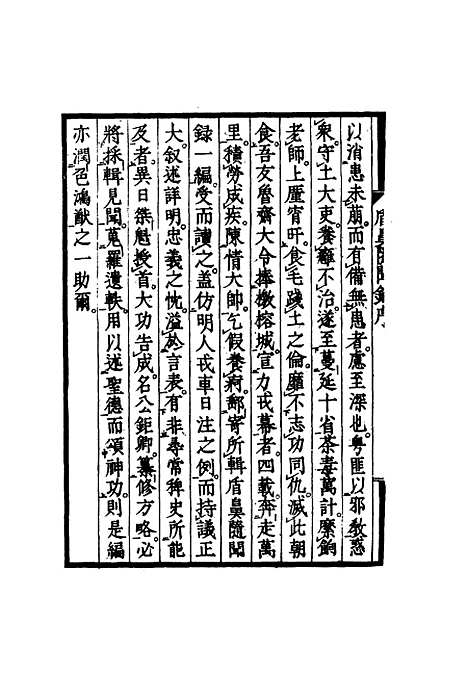 盾鼻隨聞錄序
以消患未萠而有備無患者慮至深也粵匪以邪敎惑
衆守土大吏養癰不治遂至蔓延十省荼毒萬計縻餉
老師上厪宵旰食毛踐土之倫靡不志功同仇滅此朝
食吾友魯齋大令捧檄榕城宣力戎幕者四載奔走萬
里積勞成疾陳情大帥乞假養疴鄙寄所輯盾鼻隨聞
録一編受而讀之蓋仿明人戎車日注之例而持議正
大叙述詳明忠義之忱溢於言表有非尋常稗史所能
及者異日桀魁授首大功告成名公鉅卿纂修方略必
將採輯見聞蒐羅遺軼用以述聖德而頌神功則是編
亦潤色鴻猷之一助爾